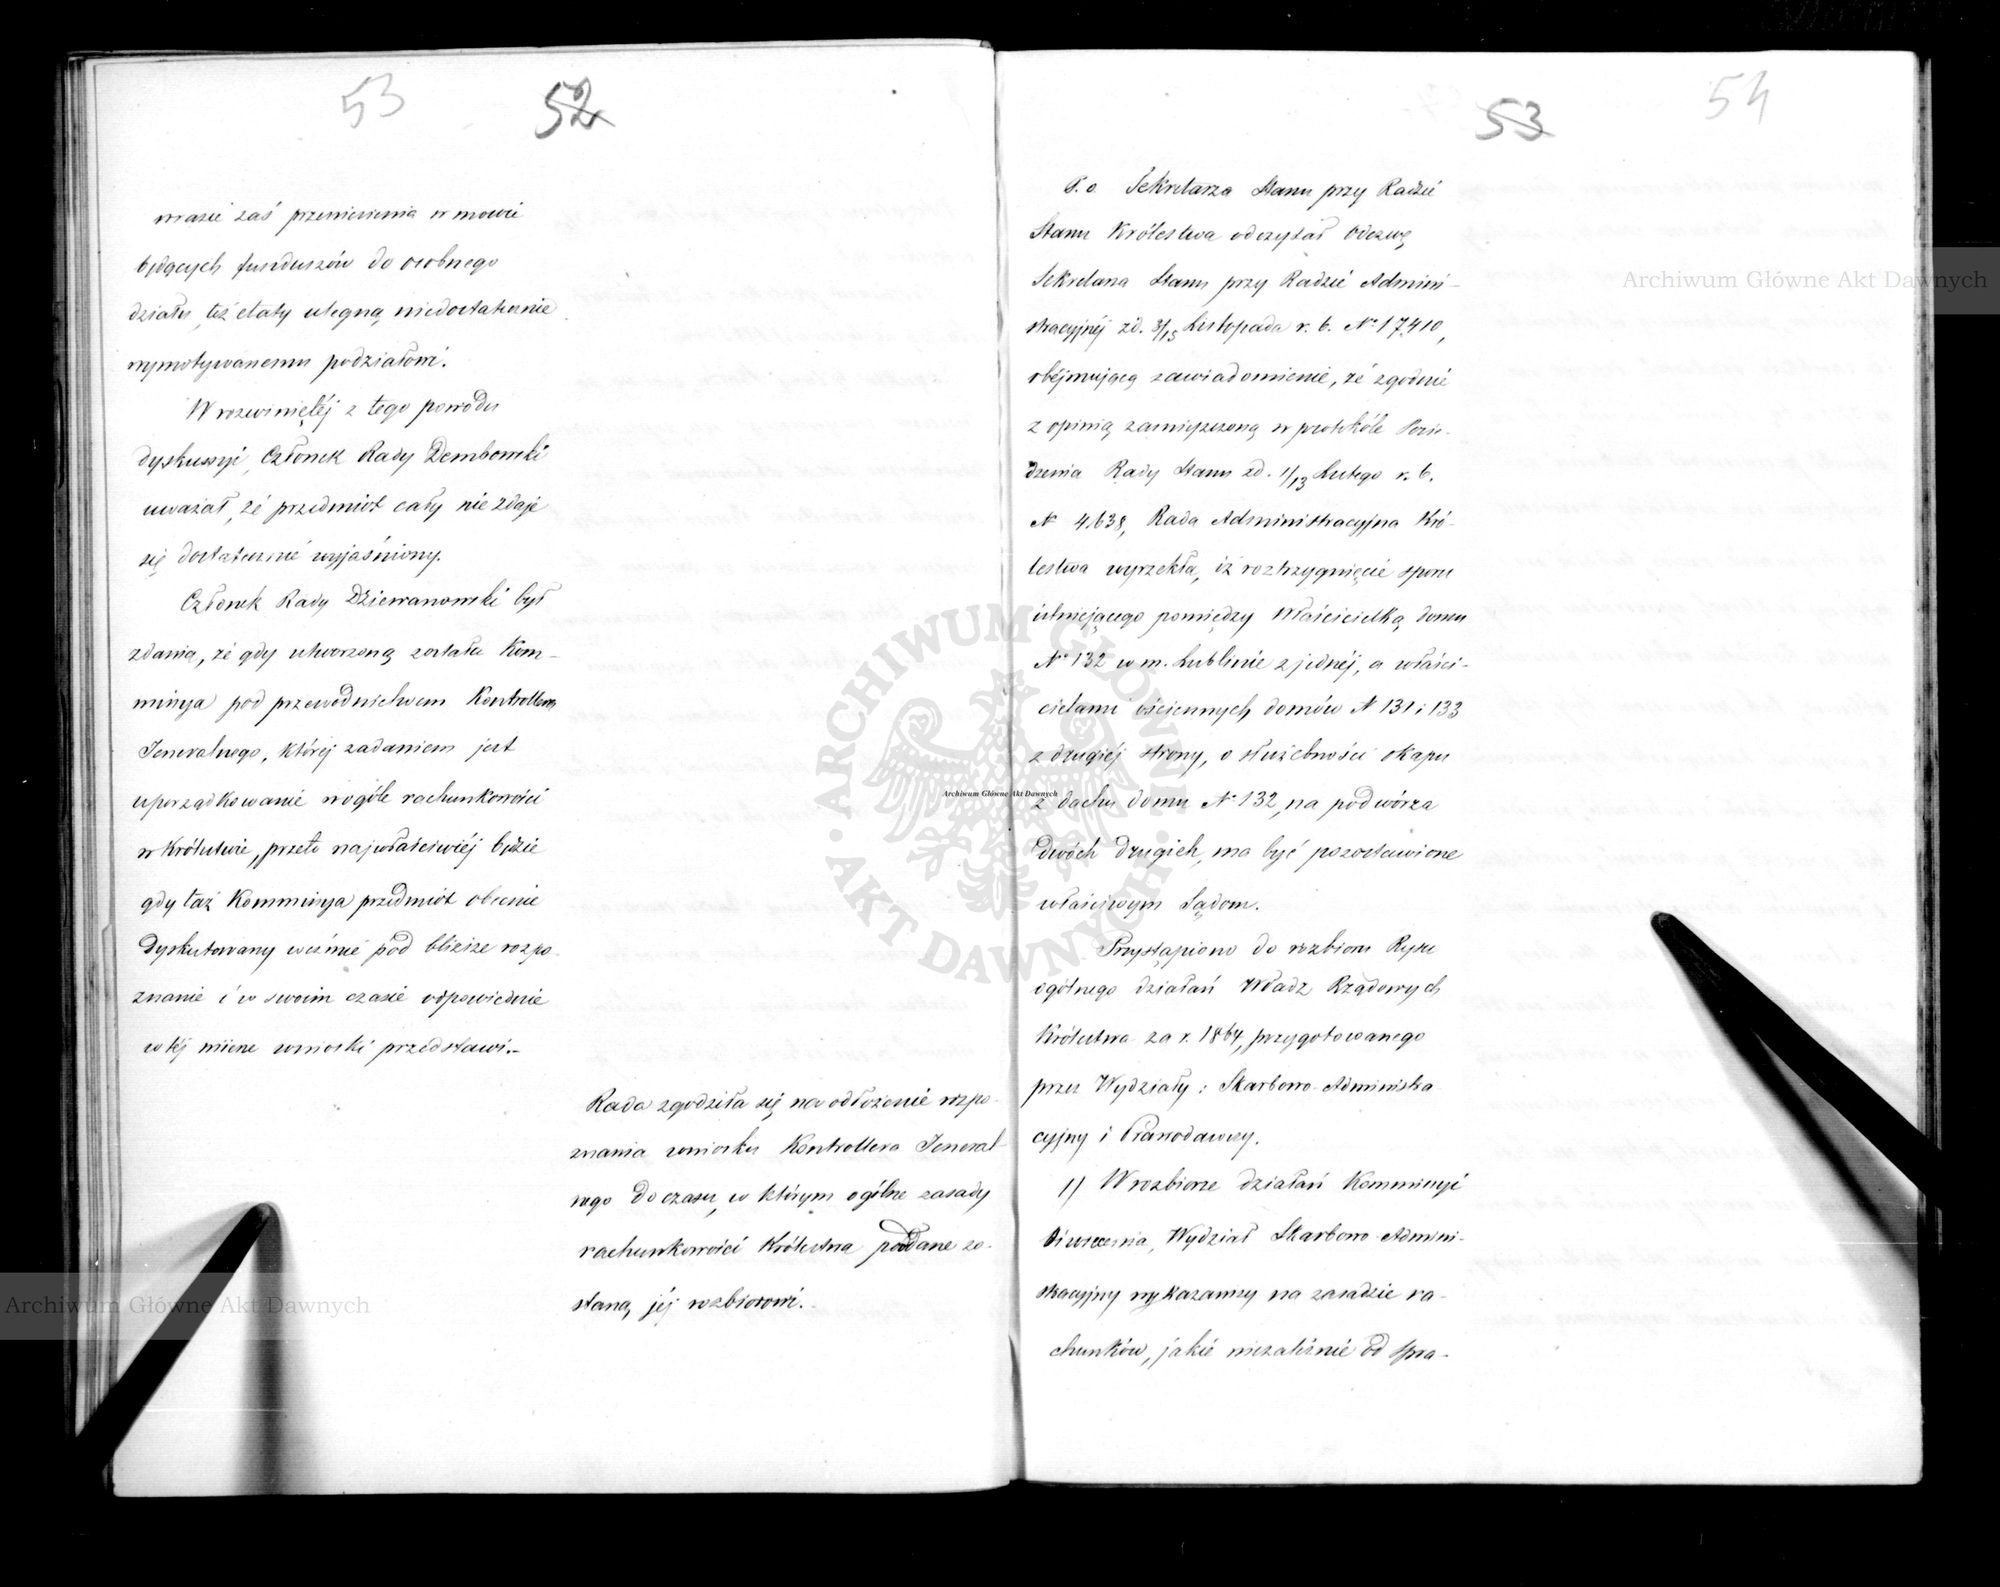 53
52
w razie zaś przeniesienia w mowie
będących funduszów do osobnego
działu, też etaty ulegną niedostatecznie
wymotywanemu podziałowi.
W rozwiniętéj z tego powodu
dyskussyi, Członek Rady Dembowski
uważał, że przedmiot cały nie zdaje
się dostatecznie wyjaśniony.
Członek Rady Dziewanowski był
zdania, że gdy utworzoną została Kom-
missya pod przewodnictwem Kontrollera
Jeneralnego, której zadaniem jest
uporządkowanie wogóle rachunkowości
w Królestwie, przeto najwłaściwiéj będzie
gdy taż Kommissya przedmiot obecnie
dyskutowany weźmie pod bliższe rozpo-
znanie i w swoim czasie odpowiednie
w téj mierze wnioski przedstawi.-
Rada zgodziła się na odłożenie rozpo-
znania wniosku Kontrollera Jeneral-
nego do czasu, w którym ogólne zasady
rachunkowości Królestwa poddane zo-
staną jéj rozbiorowi.-
53
54
P. o. Sekretarza Stanu przy Radzie
Stanu Królestwa odczytał Odezwę
Sekretarza Stanu przy Radzie Admini-
stracyjnéj z d. 3/15 Listopada r. b. Nº 17,410,
obéjmującą zawiadomienie, że zgodnie
z opinią zamieszczoną w protokóle Posie-
dzenia Rady Stanu z d. 1/13 Lutego r. b.
Nº 4,638, Rada Administracyjna Kró-
lestwa wyrzekła, iż roztrzygnięcie sporu
istniejącego pomiędzy Właścicielką domu
Nº 132 w m. Lublinie z jednéj, a właści-
cielami ościennych domów Nº 131 i 133
z drugiéj strony, o służebności okapu
z dachu domu Nº 132, na podwórza
dwóch drugich, ma być pozostawione
właściwym Sądom.
Przystąpiono do rozbioru Rysu
ogólnego działań Władz Rządowych
Królestwa za r. 1864, przygotowanego
przez Wydziały: Skarbowo-Administra
cyjny i Prawodawczy.
1) W rozbiorze działań Kommissyi
Oświecenia, Wydział Skarbowo-Admini-
stracyjny wykazawszy na zasadzie ra-
chunków, jakie niezależnie od spra-
Archiwum Główne Akt Dawnych
Archiwum Główne Akt Dawnych
Archiwum Główne Akt Dawnych
ARCHIWUM GŁÓWNE
AKT DAWNYCH